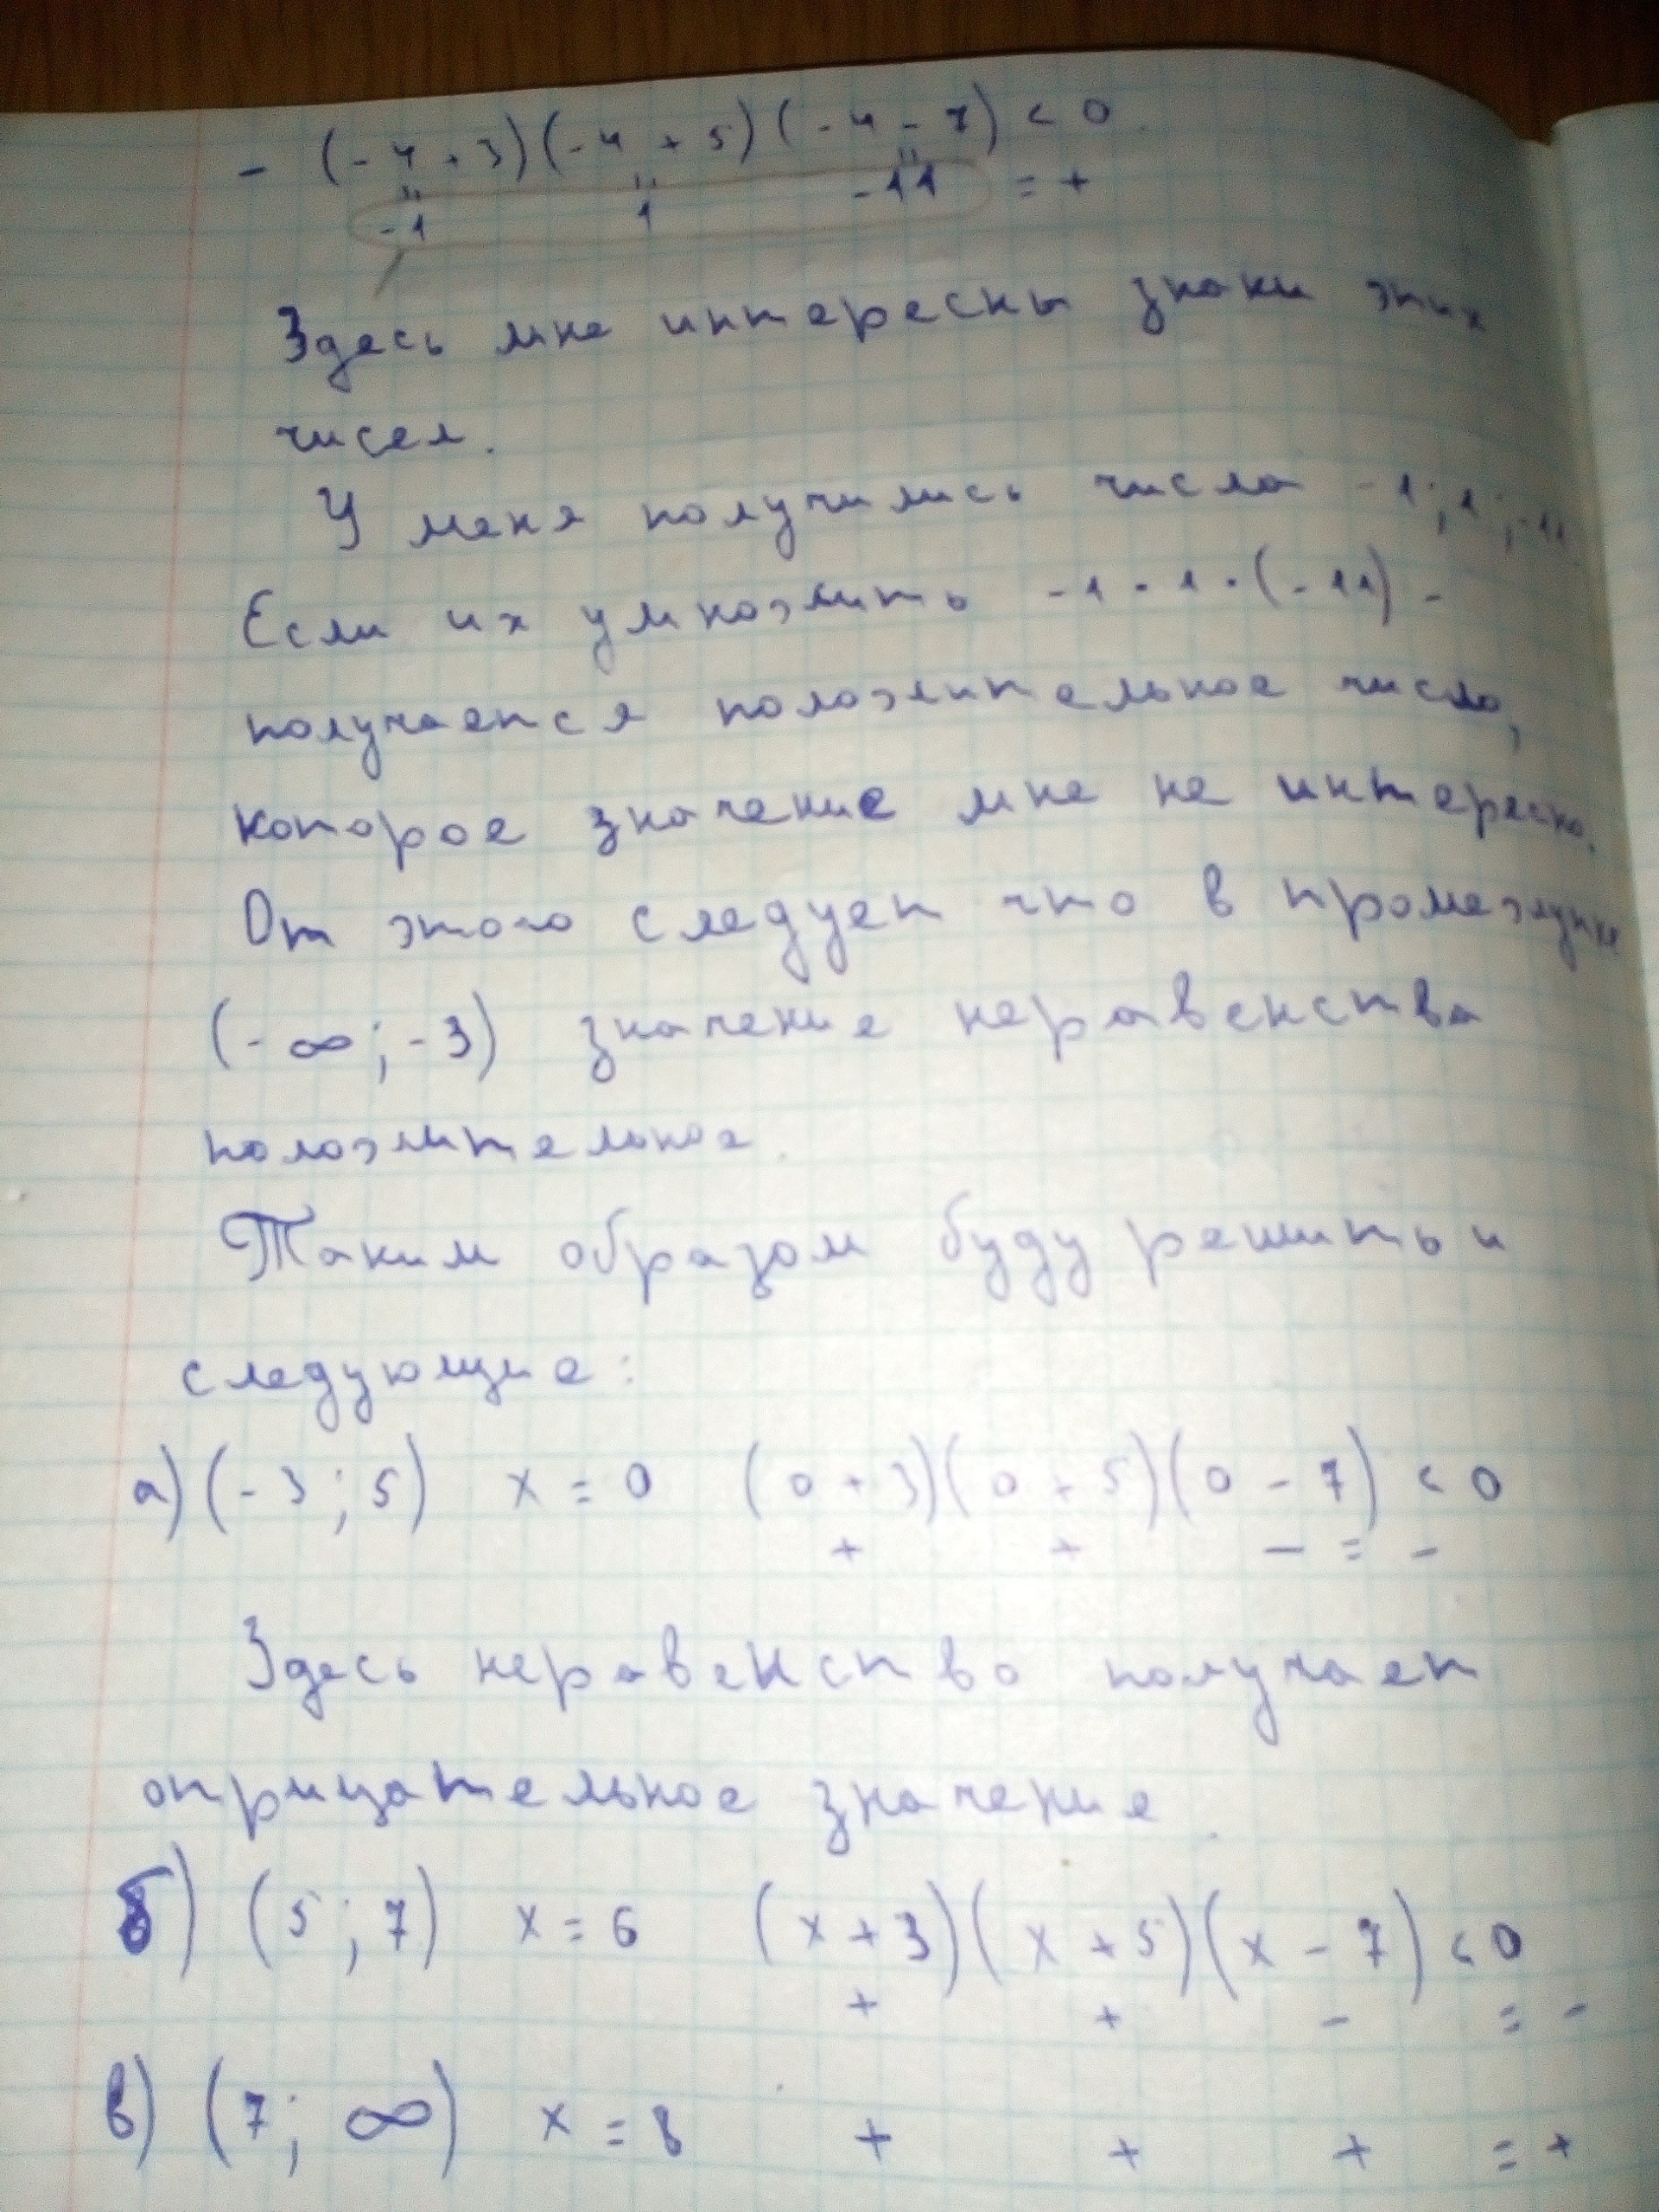 - (-4+3)(-4+5)(-4-7) < 0
-1 1 -11 = +
Здесь мне интересны знаки этих
чисел.
У меня получились числа -1; 1; -11
Если их умножить -1·1·(-11) -
получается положительное число,
которое значение мне не интересно.
От этого следует что в промежутке
(-∞; -3) значение неравенства
положительное.
Таким образом буду решить и
следующие:
а) (-3; 5) x = 0 (0+3)(0+5)(0-7) < 0
+ + - = -
Здесь неравенство получает
отрицательное значение.
б) (5; 7) x = 6 (x+3)(x+5)(x-7) < 0
+ + - = -
в) (7; ∞) x = 8 + + + = +